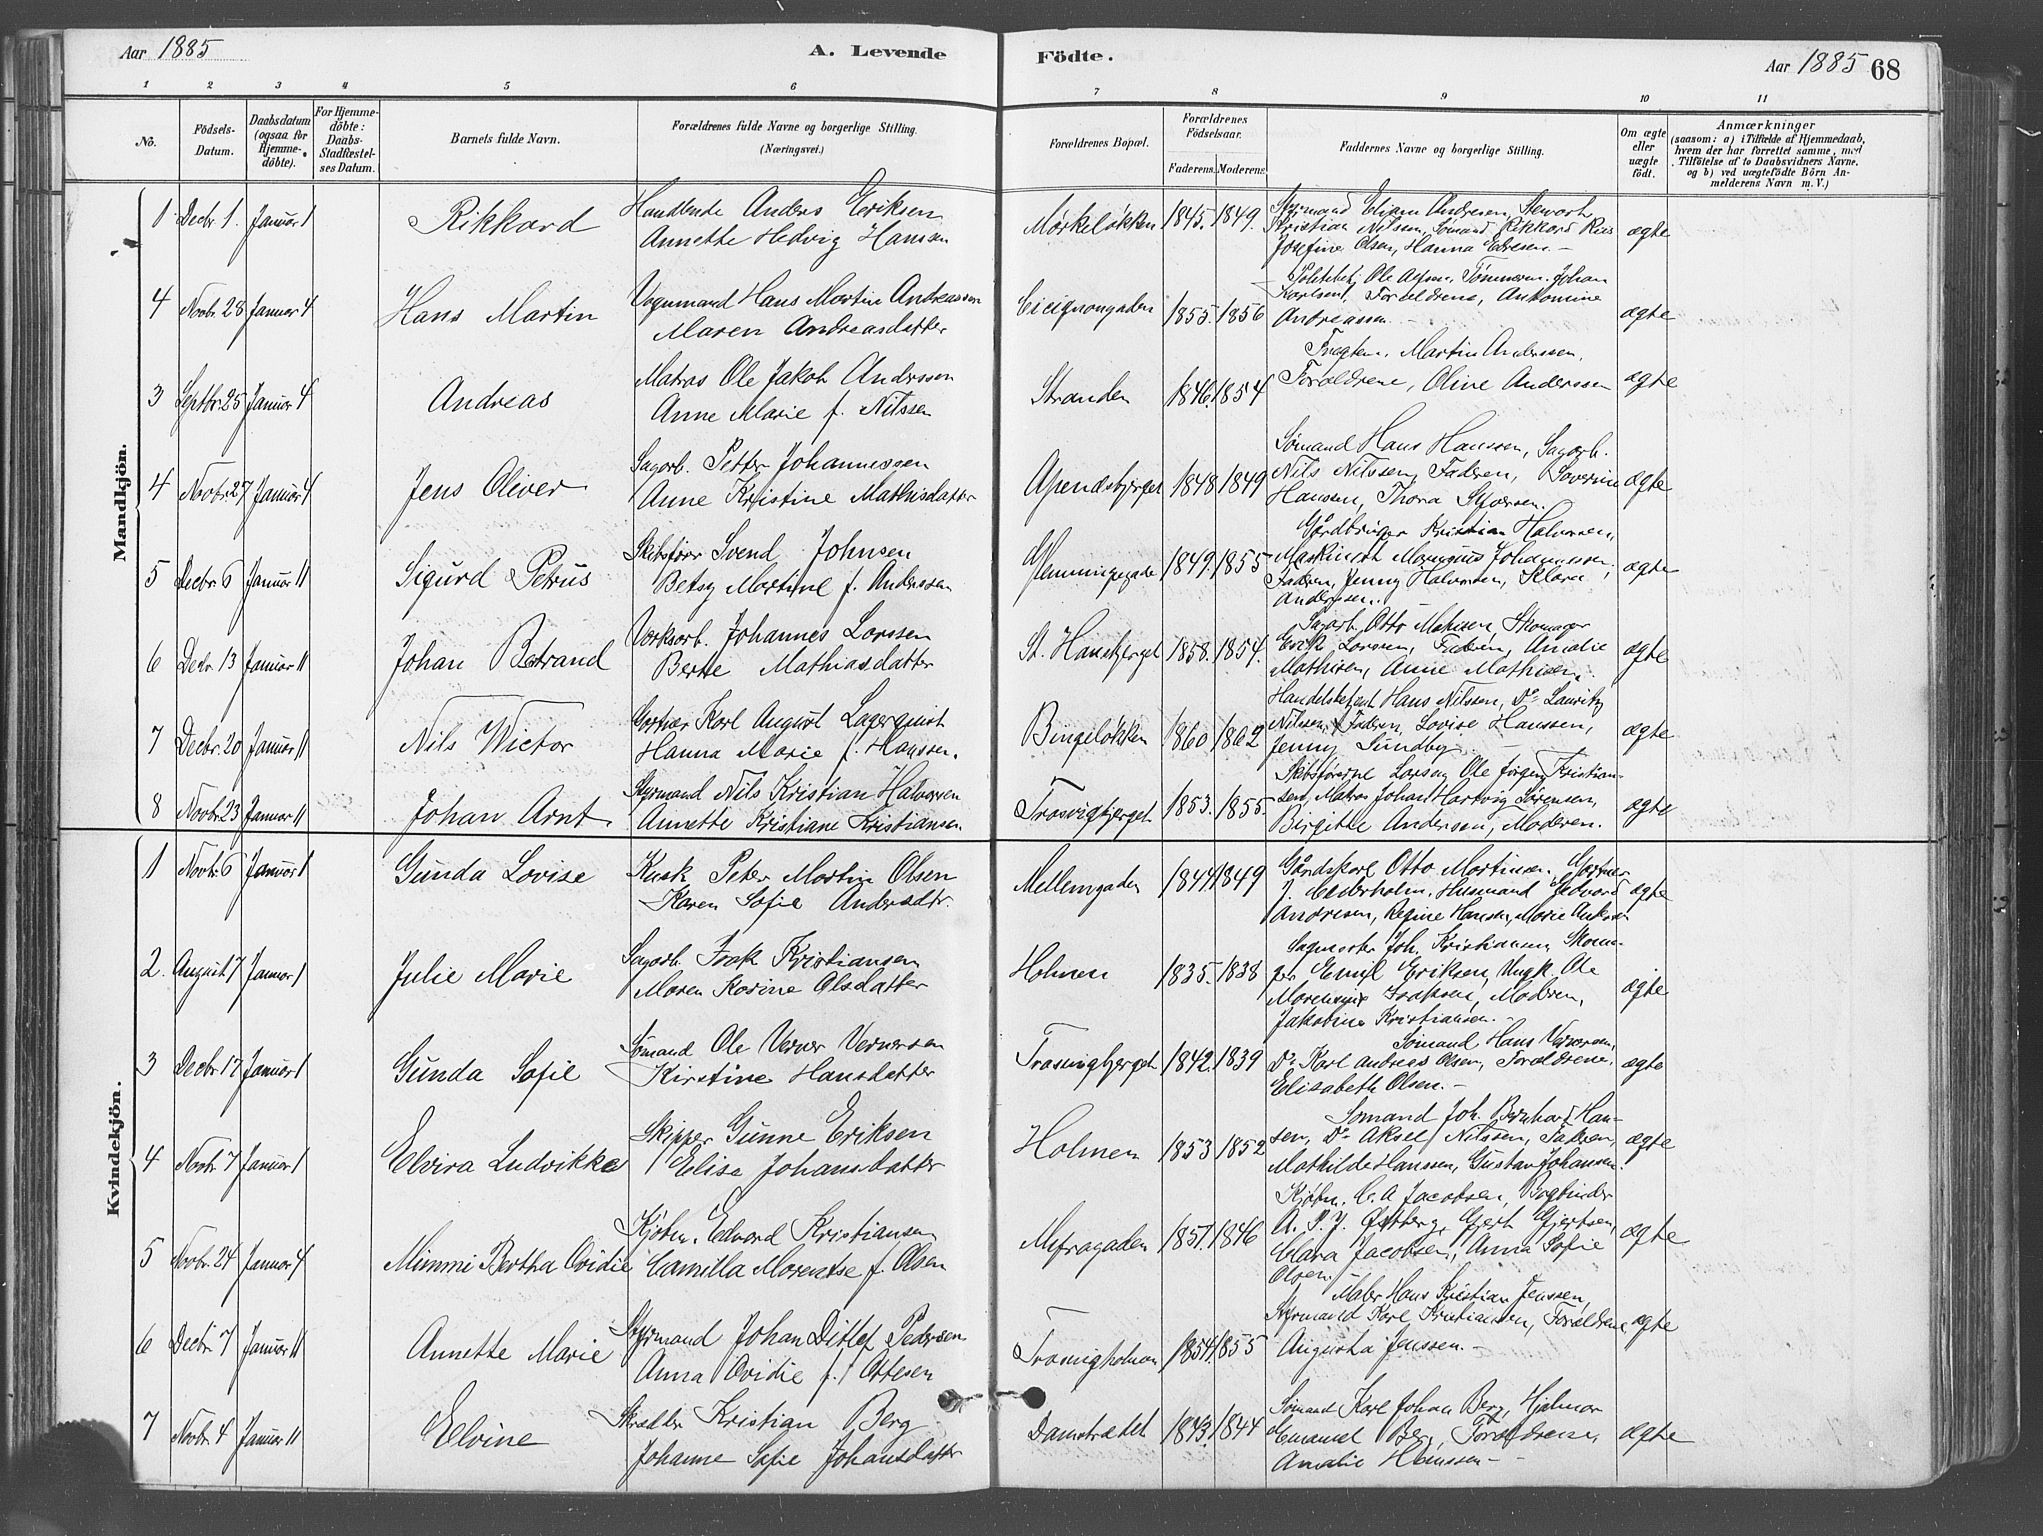 Aar 1885 A. Levende Födte. Aar 1885 68
1 2 3 4 5 6 7 8 9 10 11
No.
Födsels-Datum.
Daabsdatum (ogsaa for Hjemme-döbte).
For Hjemme-döbte: Daabs-Stadfæstel-ses Datum.
Barnets fulde Navn.
Forældrenes fulde Navne og borgerlige Stilling.
(Næringsvei.)
Forældrenes Bopæl.
Forældrenes Födselsaar.
Faderens. Moderens.
Faddernes Navne og borgerlige Stilling.
Om ægte eller uægte födt.
Anmærkninger
(saasom: a) i Tilfælde af Hjemmedaab,
hvem der har forrettet samme, med
Tilföielse af to Daabsvidners Navne,
og b) ved uægtefödte Börn An-
melderens Navn m. V.)
Mandkjön.
1 Decbr 1. Januar 1 Rikkard Handlende Anders Eriksen
Annette Hedvig Hansen
Mørkeløkken 1845. 1849.
Kristian Nilssen, Sømand Rikkard
Josefine Olsen, Hanna
ægte
4 Novbr. 28 Januar 4 Hans Martin Vognmand Hans Martin Andreassen
Maren Andreasdatter
Cicignongaden 1855. 1856
Johan
Karlsen, Forældrene,
Andreassen.
ægte
3 Septbr. 25 Januar 4 Andreas Matros Ole Jakob Anderssen
Anne Marie f. Nilssen
Stranden 1846. 1854
Martin Anderssen,
Forældrene, Oline Anderssen
ægte
4 Novbr. 27 Januar 4 Jens Oliver Sagarb. Petter Johannessen
Anne Kristine Mathisdatter
Apenæsbjerget 1848 1849
Sømand Hans Hanssen, Sagarb.
Nils Nilssen, Faderen, Severine
Hansen, Thora
ægte
5 Decbr. 6 Januar 11 Sigurd Petrus Skibsfører Svend Johnsen
Betsy Martine f. Anderssen
Glemmingegade 1849. 1855
Gårdbruger Kristian Halvorsen,
Maskinist Johannessen,
Faderen, Jenny Halvorsen, Klara
Anderssen.
ægte
6 Decbr. 13 Januar 11 Johan Betrand Værksarb. Johannes Larssen
Berte Mathiasdatter
St. Hansbjerget 1858. 1854.
Sagarb. Otto Skomager
Erik Larssen, Faderen, Amalie
Mathisen, Anne Mathisen.
ægte
7 Decbr. 20 Januar 11 Nils Wictor Gartner Karl August Lagerquist
Hanna Marie f. Hanssen.
Bingeløkken 1860 1862
Handelsbetjent Hans Nilssen, Do Lauritz
Nilssen, Faderen, Lovise Hanssen,
Jenny Sundby
ægte
8 Novbr. 23 Januar 11 Johan Arnt Styrmand Nils Kristian Halvorsen
Annette Kristiane Kristiansen.
Trosvigbjerget 1853. 1855.
Skibsførerne Larsen, Ole Jørgen Kristian-
sen, Matros Johan Hartvig Sørensen,
Birgitte Andersen, Moderen.
ægte
Kvindekjön.
1 Novbr. 6 Januar 1 Gunda Lovise Kusk Peter Martin Olsen
Karen Sofie Andersdtr.
Mellemgaden 1844 1849
Gårdskarl Otto Martinsen, Gartner
J. Cederholm, Husmand Edvard
Andresen, Regine Hansen, Marie
ægte
2. August 7 Januar 1 Julie Marie Sagarb. Isak Kristiansen
Maren Karine Olsdatter
Holmen 1835. 1838
Joh. Kristiansen,
Emil Eriksen, Ungk. Ole
Isaksen, Moderen,
Jakobine Kristiansen.
ægte
3 Decbr. 17 Januar 1 Gunda Sofie Sømand Ole Verner Vernersen
Kirstine Hansdatter
Trosvigbjerget 1842. 1839
Sømand Hans
Do Karl Andreas Olsen, Forældrene,
Elisabeth Olsen. -
ægte
4 Novbr. 7 Januar 1 Elvira Ludvikke Skipper Gunne Eriksen
Elise Johansdatter
Holmen 1853 1852
Sømand Joh. Bernhard Han-
sen, Do Aksel Nilssen, Faderen,
Mathilde Hanssen, Gustav Johansen.
ægte
5 Novbr. 24 Januar 4 Mimmi Bertha Ovidie Kjøbm. Edvard Kristiansen
Camilla Morentse f. Olsen
1851. 1846
Kjøbm. C. A Jacobsen, Bogbinder
A. P. J. Østberg, Gjert Gjertsen,
Clara Jacobsen, Anna Sofie
Olsen.
ægte
6 Decbr. 7 Januar 11 Annette Marie Styrmand Johan Ditlef Pedersen
Anna Ovidie f. Ottesen
Trosvigholmen 1854. 1855
Maler Hans Kristian Jenssen,
Styrmand Karl Kristiansen, Forældrene
Augusta Jenssen. -
ægte
7 Novbr. 4 Januar 11 Elvine Skrædder Kristian Berg
Johanne Sofie Johansdatter
Damstrædet 1843. 1844
Sømand Karl Johan Berg, Hjalmar
Emanuel Berg, Forældrene,
Amalie
ægte